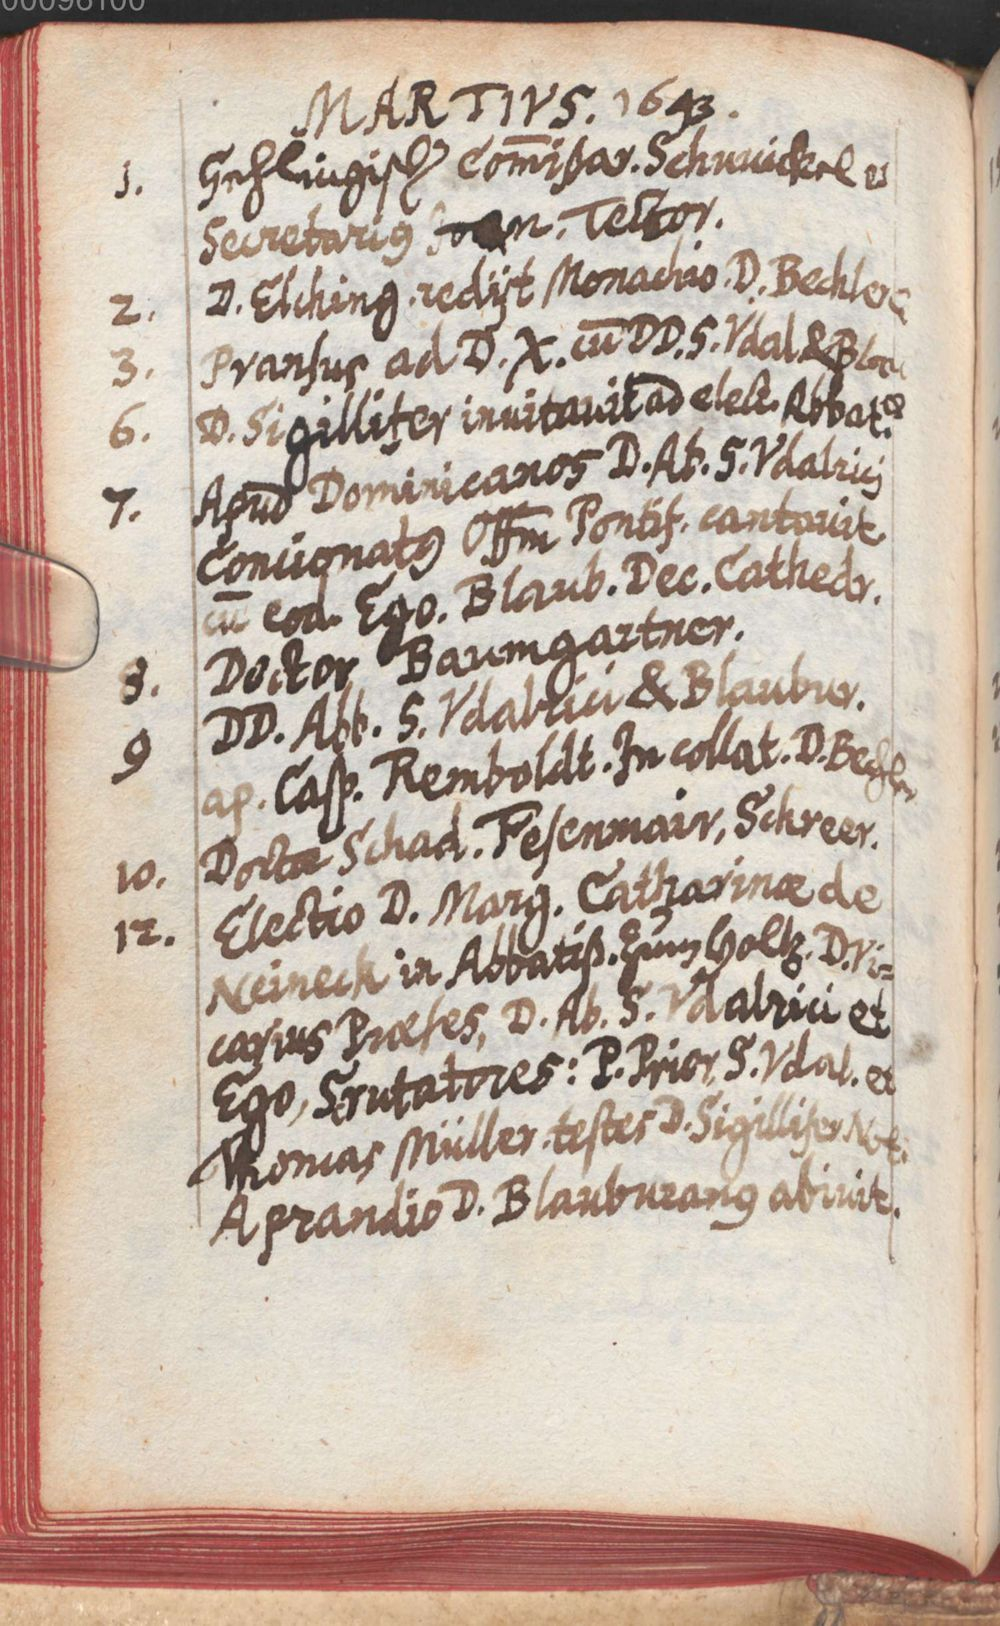 00098100
MARTIVS. 1643.
1. Gehlingisch Com̅ißar. Schwickel et
Secretarius Joan. Textor.
2. D. Elching. redijt Monachio. D. Bechler
3. Pransus ad D. X. cu̅ DD. S. Vdal. & Blau
6. D. Sigillifer inuitauit ad elect. Abbat.
7. Apud Dominicanos D. Ab. S. Vdalricj
Concionatus Offm Pontif. cantauit.
cu̅ eod. Ego. Blaub. Dec. Cathedr.
8. Doctor Baumgartner.
9 DD. Abb. S. Vdalrici & Blaubur.
ap. Casp. Remboldt. In collat. D. Bechler
10. Doctor Schad. Fesenmair, Schreer.
12. Electio D. Marg. Catharinæ de
Neineck in Abbatiß. Holtz. D. Vi=
carius Præses, D. Ab. S. Vdalrici et
Ego, Scrutatores: P. Prior S. Vdal. et
Thomas Müller testes D. Sigillifer Not.
A prandio D. Blauburanus abiuit.